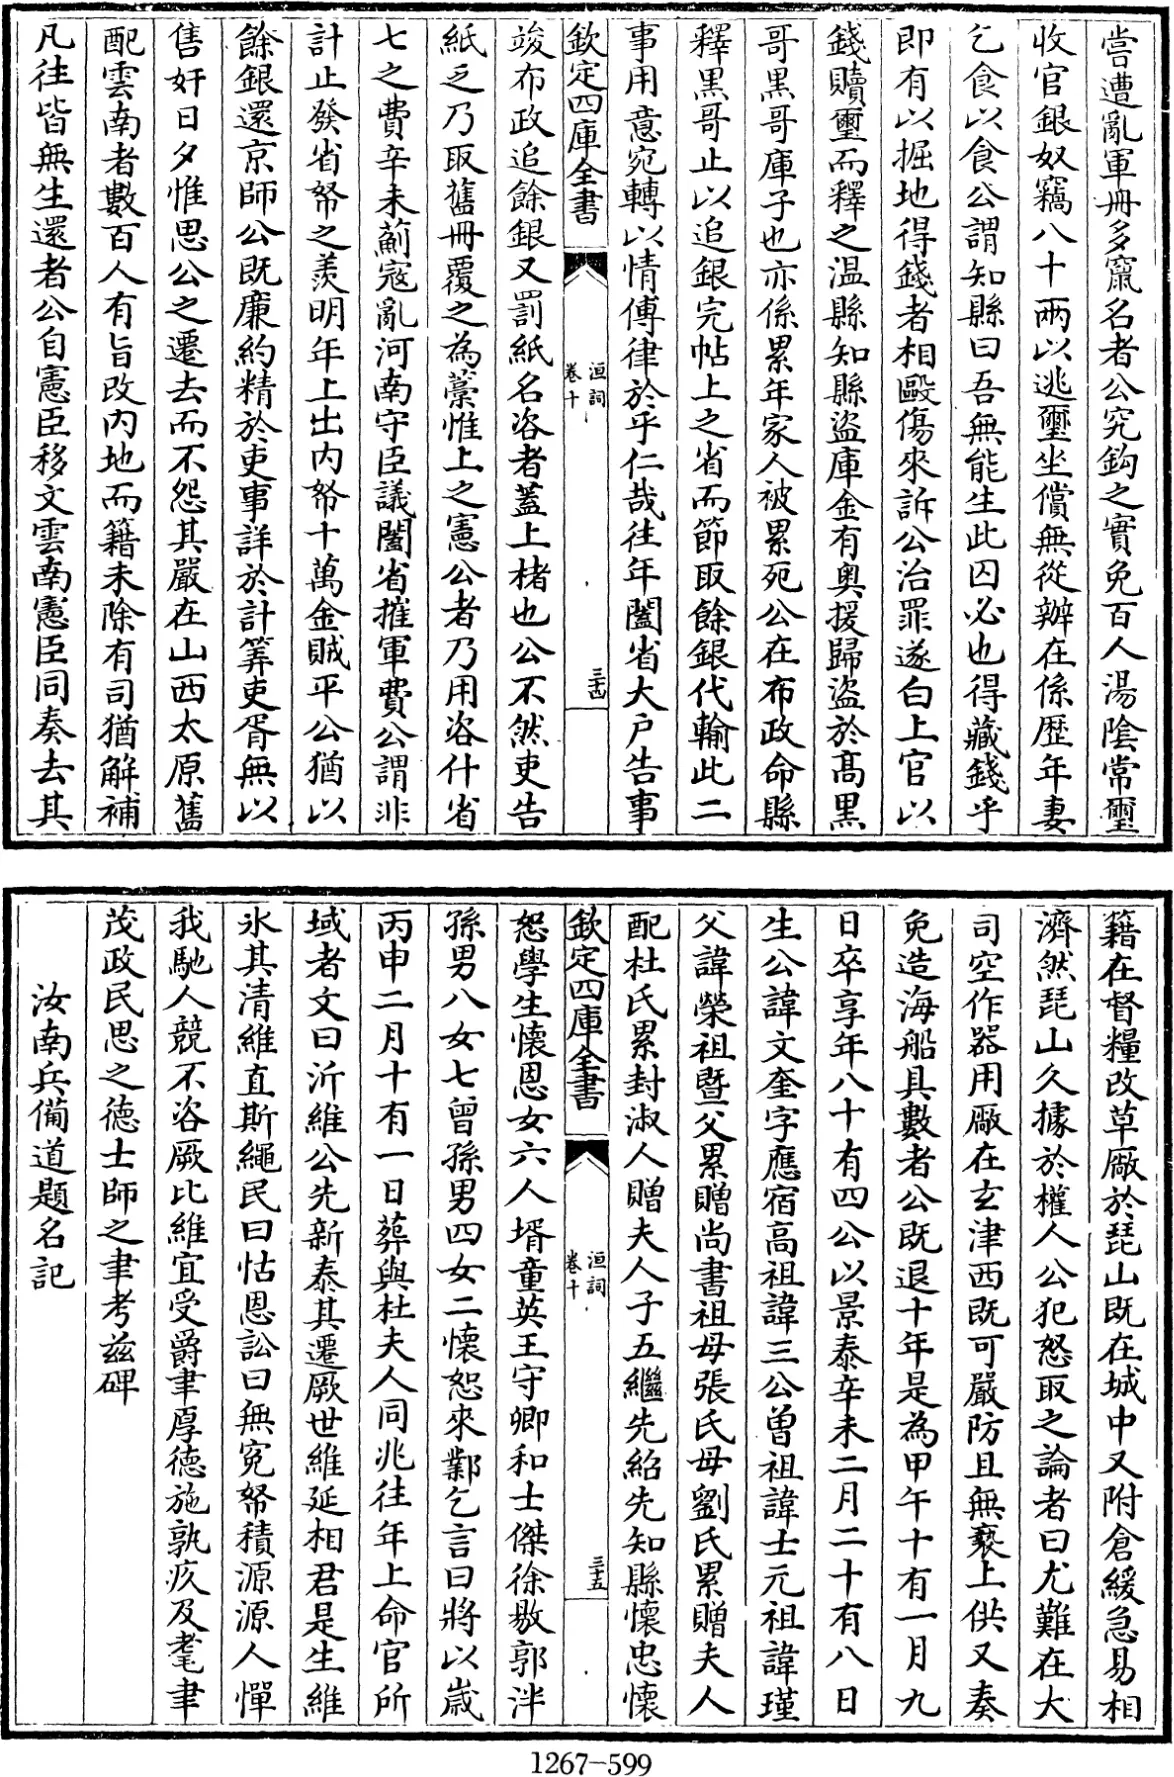 嘗遭亂軍冊多竄名者公究鈎之實免百人湯陰常璽
收官銀奴竊八十兩以逃璽坐償無從辦在係歴年妻
乞食以食公謂知縣曰吾無能生此囚必也得藏錢乎
即有以掘地得錢者相毆傷來訴公治罪遂白上官以
錢贖璽而釋之温縣知縣盜庫金有奥援歸盜於髙黒
哥黒哥庫子也亦係累年家人被累死公在布政命縣
釋黒哥止以追銀完帖上之省而節取餘銀代輸此二
事用意宛轉以情傅律於乎仁哉往年闔省大户告事
欽定四庫全書
洹詞
卷十
三十四
竣布政追餘銀又罰紙名咨者蓋上楮也公不然吏告
紙乏乃取舊冊覆之為藁惟上之憲公者乃用咨什省
七之費辛未薊寇亂河南守臣議闔省摧軍費公謂非
計止發省帑之羡明年上出内帑十萬金賊平公猶以
餘銀還京師公既廉約精於吏事詳於計筭吏胥無以
售奸日夕惟思公之遷去而不怨其嚴在山西太原舊
配雲南者數百人有旨改内地而籍未除有司猶解補
凡往皆無生還者公自憲臣移文雲南憲臣同奏去其
籍在督糧改草厰於琵山既在城中又附倉緩急易相
濟然琵山久據於權人公犯怒取之論者曰尤難在大
司空作器用厰在玄津西既可嚴防且無褻上供又奏
免造海船具數者公既退十年是為甲午十有一月九
日卒享年八十有四公以景泰辛未二月二十有八日
生公諱文奎字應宿高祖諱三公曽祖諱士元祖諱瑾
父諱榮祖暨父累贈尚書祖母張氏母劉氏累贈夫人
配杜氏累封淑人贈夫人子五繼先紹先知縣懷忠懷
欽定四庫全書
洹詞
卷十
三十五
恕學生懷恩女六人壻童英王守卿和士傑徐敭郭泮
孫男八女七曾孫男四女二懷恕來鄴乞言曰將以嵗
丙申二月十有一日葬與杜夫人同兆往年上命官所
域者文曰沂維公先新泰其遷厥世維延相君是生維
氷其清維直斯繩民曰怙恩訟曰無寃帑積源源人憚
我馳人競不咨厥比維宜受爵聿厚德施孰疚及耄聿
茂政民思之徳士師之聿考兹碑
汝南兵備道題名記
1267-599